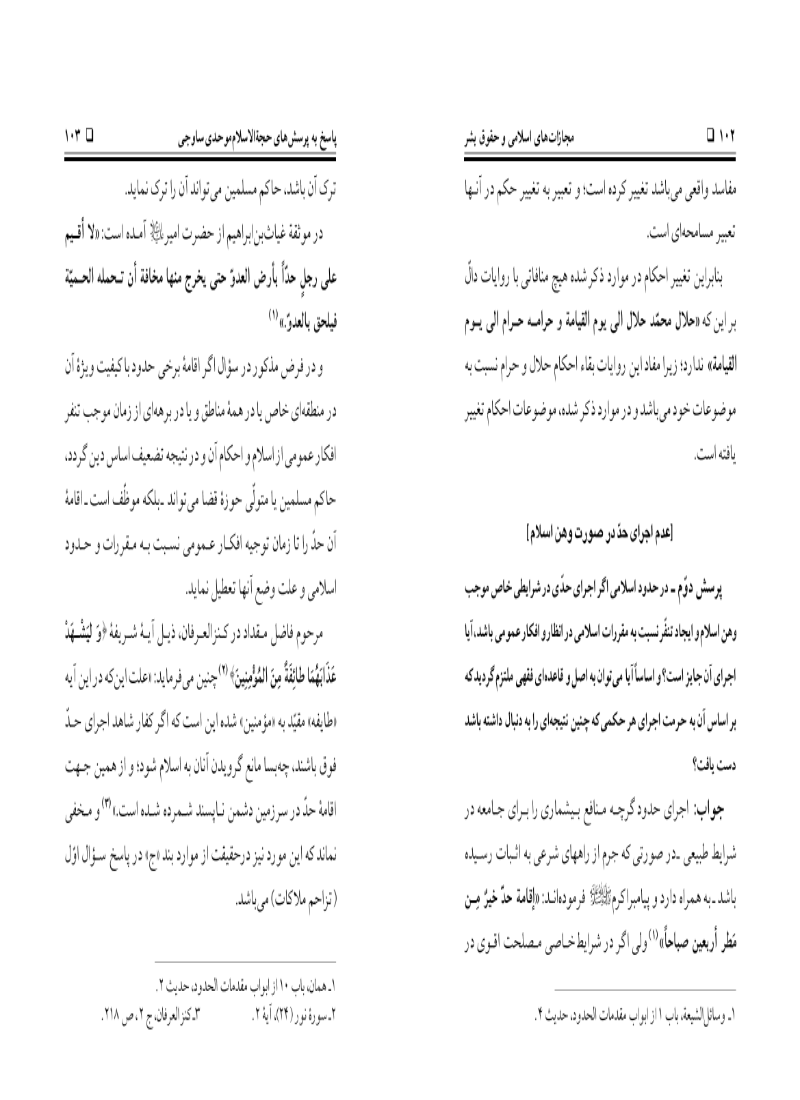 ۱۰۲ ❑ مجازات‌های اسلامی و حقوق بشر
مفاسد واقعی می‌باشد تغییر کرده است؛ و تعبیر به تغییر حکم در آنـها
تعبیر مسامحه‌ای است.
بنابراین تغییر احکام در موارد ذکر شده هیچ منافاتی با روایات دالّ
بر این که «حلال محمّد حلال الی یوم القیامة و حرامـه حـرام الی یـوم
القیامة» ندارد؛ زیرا مفاد این روایات بقاء احکام حلال و حرام نسبت به
موضوعات خود می‌باشد و در موارد ذکر شده، موضوعات احکام تغییر
یافته است.
[عدم اجرای حدّ در صورت وهن اسلام]
پرسش دوّم ـ در حدود اسلامی اگر اجرای حدّی در شرایطی خاص موجب
وهن اسلام و ایجاد تنفّر نسبت به مقررات اسلامی در انظار و افکار عمومی باشد، آیا
اجرای آن جایز است؟ و اساساً آیا می‌توان به اصل و قاعده‌ای فقهی ملتزم گردید که
بر اساس آن به حرمت اجرای هر حکمی که چنین نتیجه‌ای را به دنبال داشته باشد
دست یافت؟
جواب: اجرای حدود گرچـه مـنافع بـیشماری را بـرای جـامعه در
شرایط طبیعی ـ در صورتی که جرم از راههای شرعی به اثـبات رسـیده
باشد ـ به همراه دارد و پیامبر اکرم ﷺ فرموده‌انـد: «إقامة حدّ خیرٌ مـن
مَطر أربعین صباحاً»(۱) ولی اگر در شرایط خـاصی مـصلحت اقـوی در
۱ـ وسائل‌الشیعة، باب ۱ از ابواب مقدمات الحدود، حدیث ۴.
پاسخ به پرسش‌های حجة‌الاسلام موحدی ساوجی ❑ ۱۰۳
ترک آن باشد، حاکم مسلمین می‌تواند آن را ترک نماید.
در موثقۀ غیاث‌بن‌ابراهیم از حضرت امیر علیه السلام آمـده است: «لا أقـیم
علی رجلٍ حدّاً بأرض العدوّ حتی یخرج منها مخافة أن تـحمله الحـمیّة
فیلحق بالعدوّ.»(۱)
و در فرض مذکور در سؤال اگر اقامۀ برخی حدود با کیفیت ویژۀ آن
در منطقه‌ای خاص یا در همۀ مناطق و یا در برهه‌ای از زمان موجب تنفر
افکار عمومی از اسلام و احکام آن و در نتیجه تضعیف اساس دین گردد،
حاکم مسلمین یا متولّی حوزۀ قضا می‌تواند ـ بلکه موظّف است ـ اقامۀ
آن حدّ را تا زمان توجیه افکـار عـمومی نسـبت بـه مـقررات و حـدود
اسلامی و علت وضع آنها تعطیل نماید.
مرحوم فاضل مـقداد در کـنزالعـرفان، ذیـل آیـۀ شـریفۀ ﴿وَ لْیَشْـهَدْ
عَذَابَهُمَا طَائِفَةٌ مِنَ الْمُؤْمِنِینَ﴾(۲) چنین می‌فرماید: «علت این‌که در این آیه
«طایفه» مقیّد به «مؤمنین» شده این است که اگر کفار شاهد اجرای حـدّ
فوق باشند، چه‌بسا مانع گرویدن آنان به اسلام شود؛ و از همین جـهت
اقامۀ حدّ در سرزمین دشمن نـاپسند شـمرده شـده است.»(۳) و مـخفی
نماند که این مورد نیز درحقیقت از موارد بند «ج» در پاسخ سـؤال اوّل
(تزاحم ملاکات) می‌باشد.
۱ـ همان، باب ۱۰ از ابواب مقدمات الحدود، حدیث ۲.
۲ـ سورۀ نور (۲۴)، آیۀ ۲. ۳ـ کنزالعرفان، ج ۲، ص ۲۱۸.